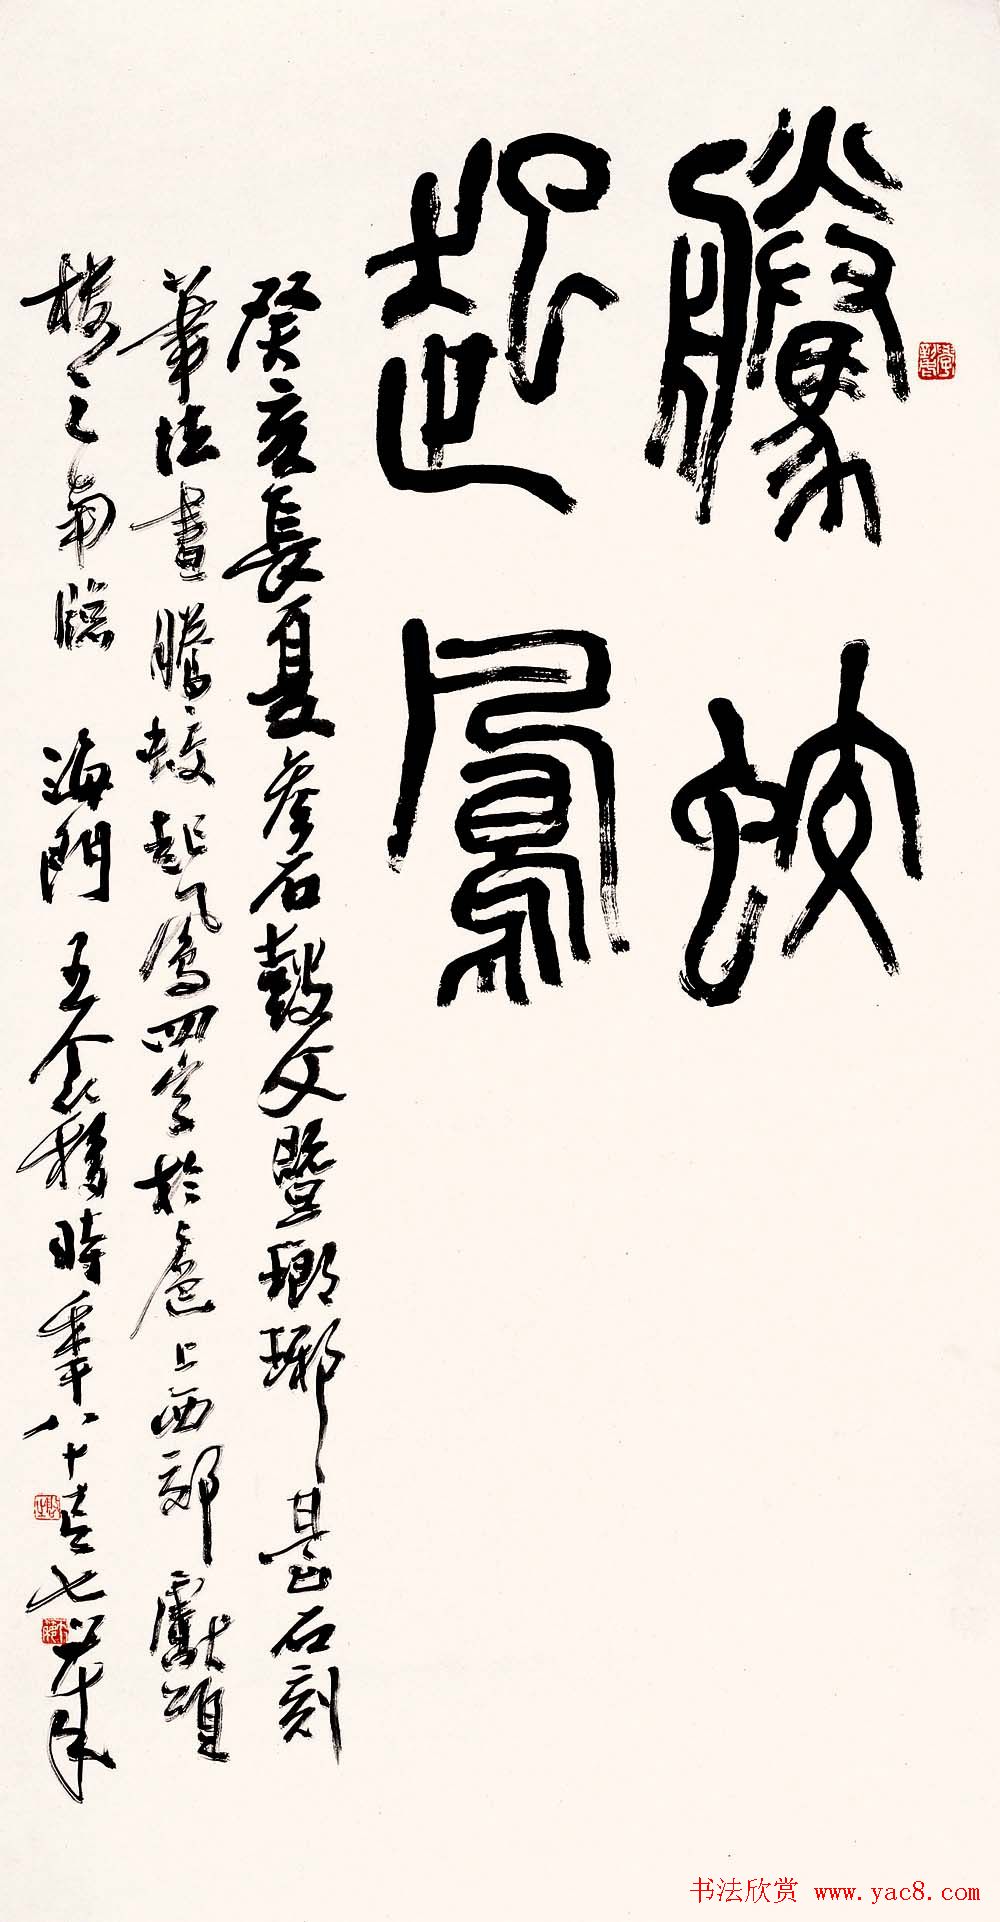 騰蛟
起鳳
癸亥長夏參石鼓文暨瑯琊臺石刻
筆法書騰蛟起鳳四字於滬上西郊獻頌
樓之南牕 海門王个簃時年八十有七
书法欣赏 www.yac8.com